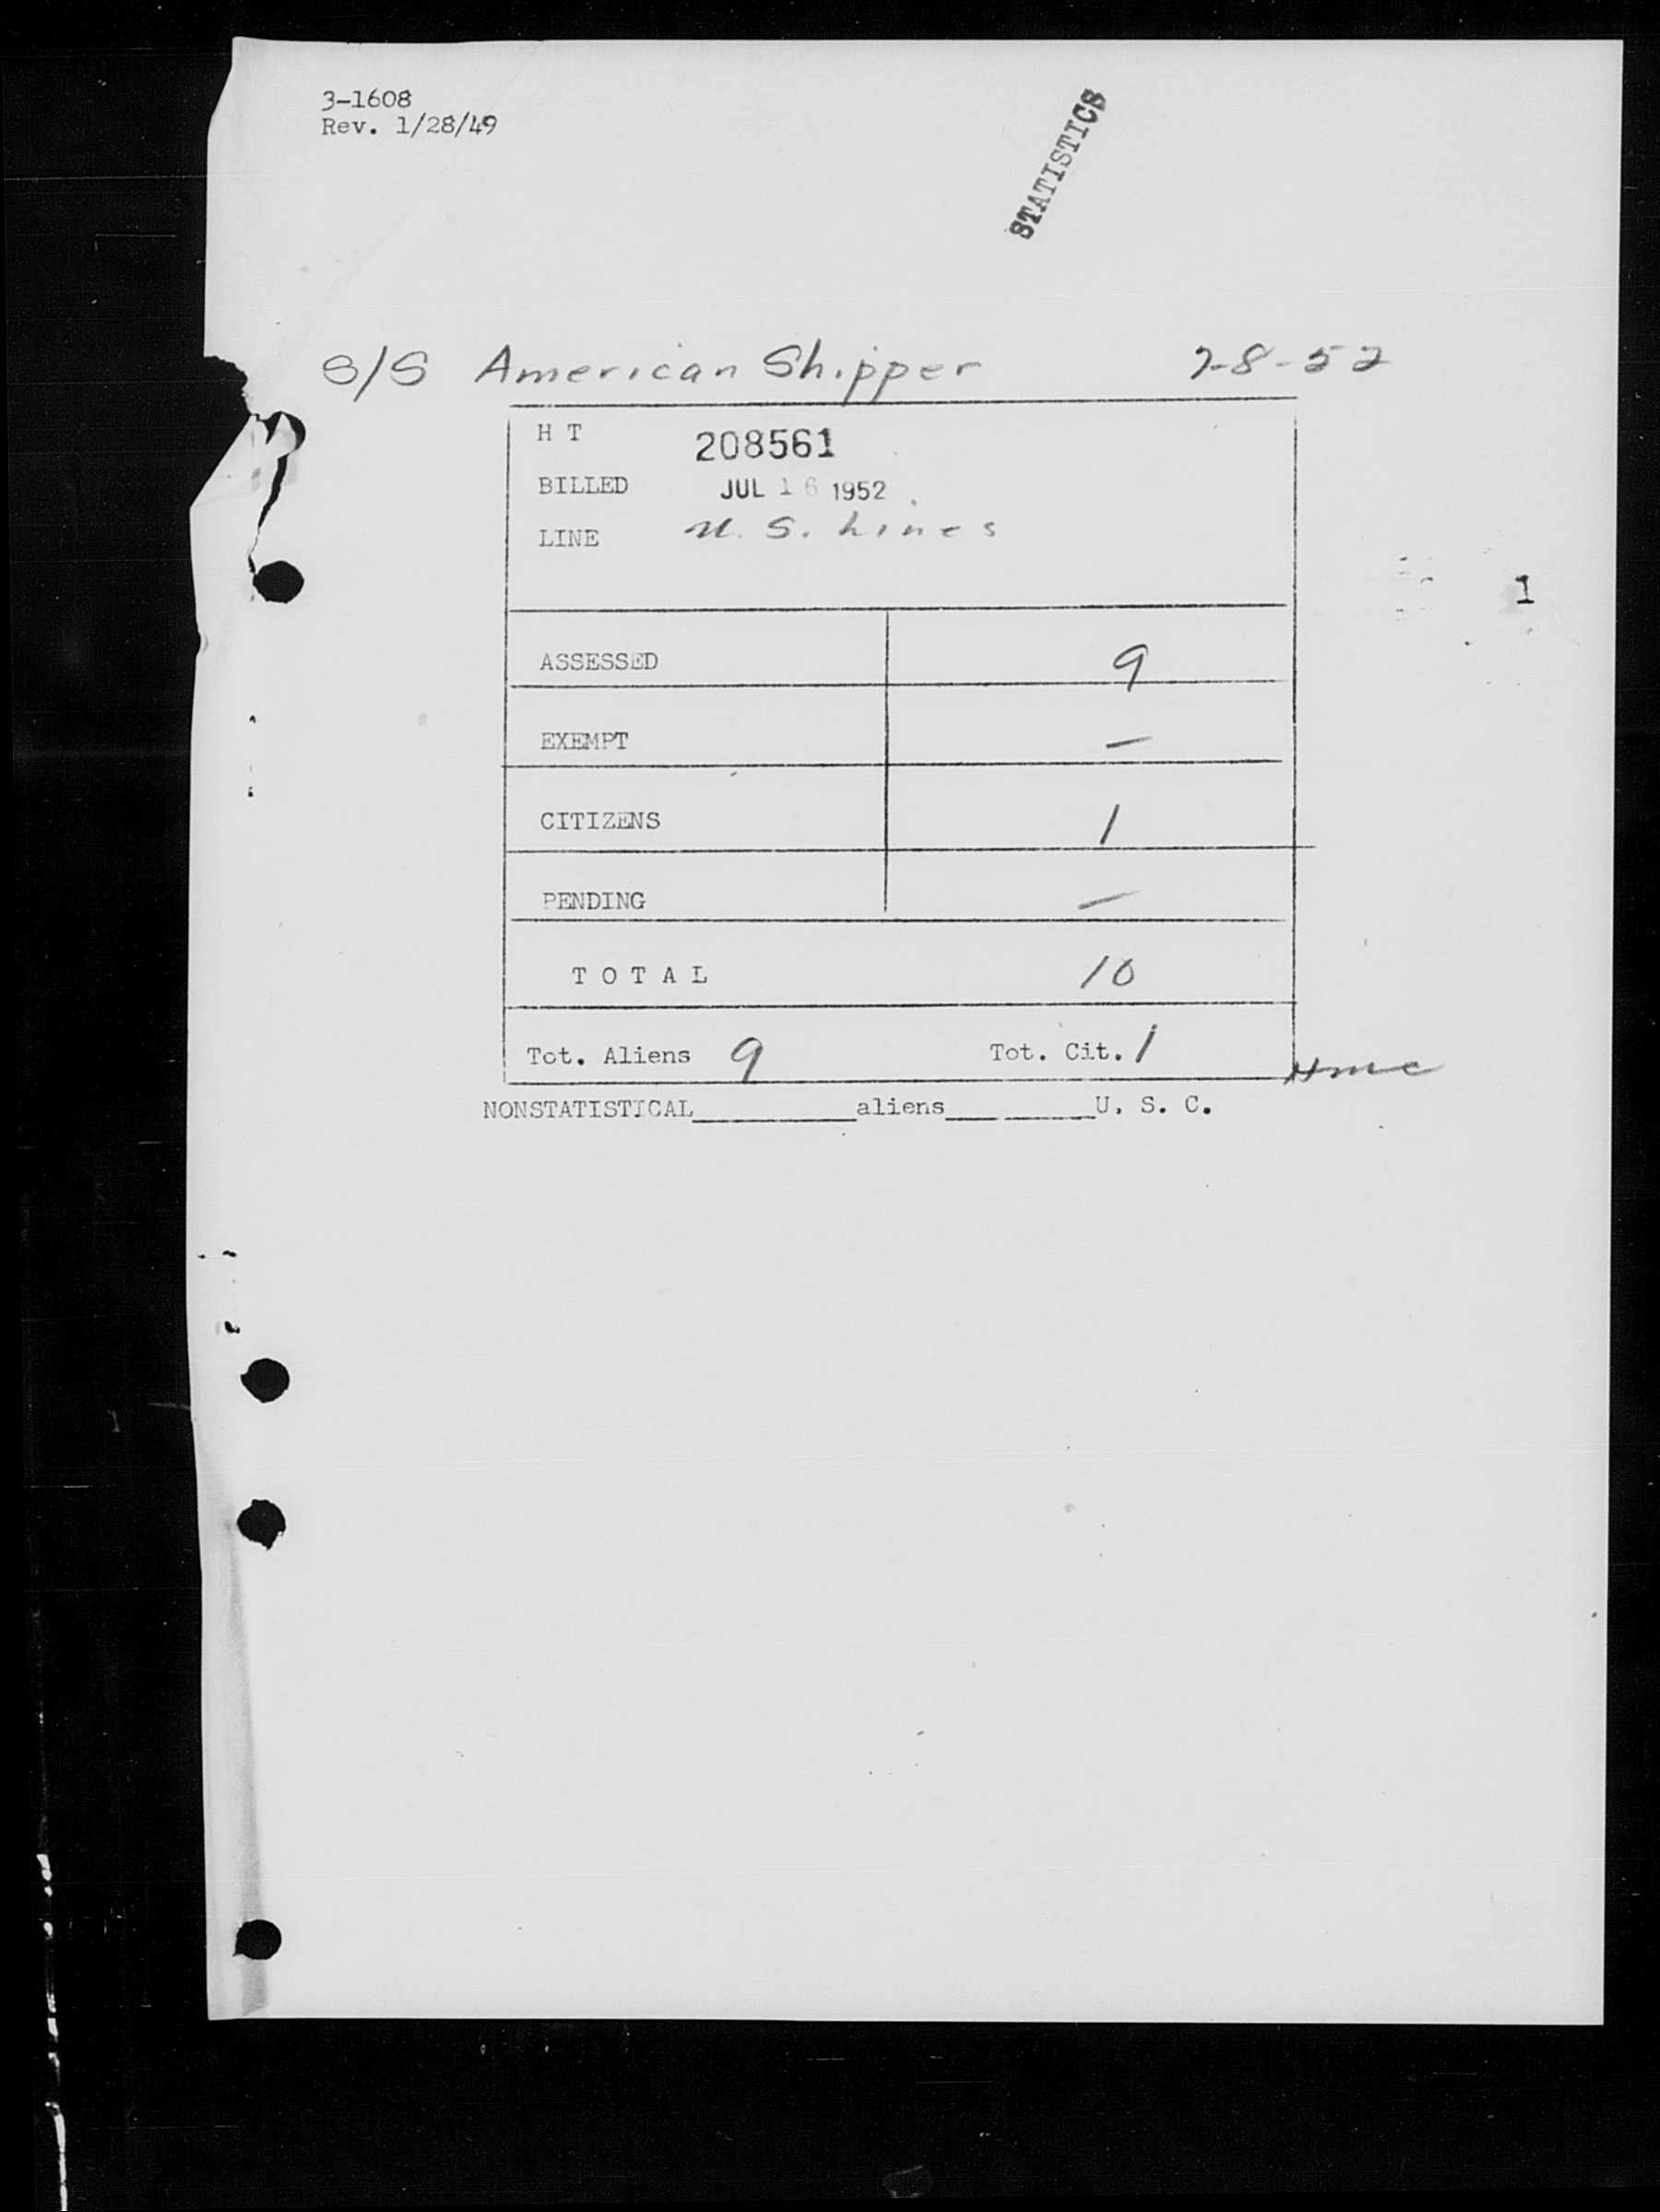 3-1608
Rev. 1/28/49
STATISTICS
S/S American Shipper 7-8-52
H T 208561
BILLED JUL 16 1952
LINE U. S. Lines
1
ASSESSED 9
EXEMPT —
CITIZENS 1
PENDING —
T O T A L 10
Tot. Aliens 9 Tot. Cit. 1
Hmc
NONSTATISTICAL__________aliens__________U. S. C.